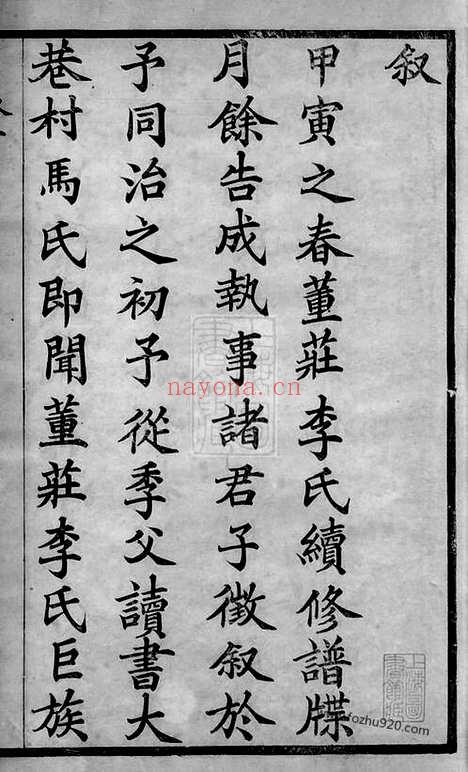 叙
甲寅之春董莊李氏續修譜牒
月餘告成執事諸君子徵叙於
予同治之初予從季父讀書大
巷村馬氏即聞董莊李氏巨族
nayona.cn
fozhu920.com